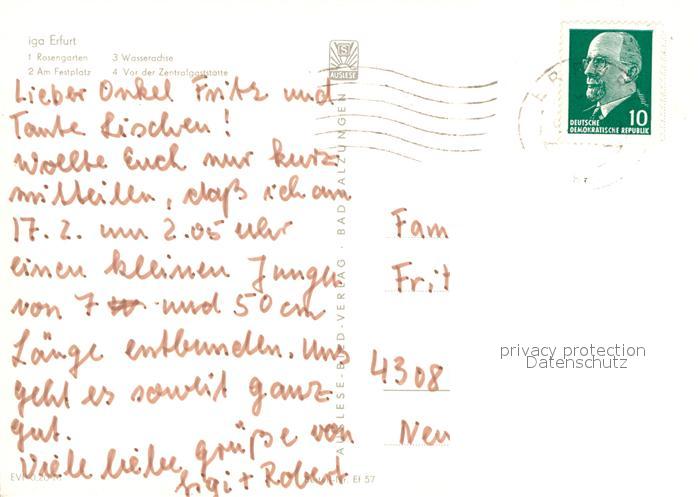 iga Erfurt
1 Rosengarten 3 Wasserachse
2 Am Festplatz 4 Vor der Zentralgaststätte
S
AUSLESE
Lieber Onkel Fritz und
Tante Lischen!
wollte Euch nur kurz
mitteilen, daß ich am
17.2. um 2.05 uhr
einen kleinen Jungen
von 7 und 50 cm
Länge entbunden. Uns
geht es soweit ganz
gut.
Viele liebe grüße von
Sigi + Robert
AUSLESE-BILD-VERLAG · BAD SALZUNGEN
Ef 57
DEUTSCHE
DEMOKRATISCHE REPUBLIK
10
Fam
Frit
4308
Neu
privacy protection
Datenschutz